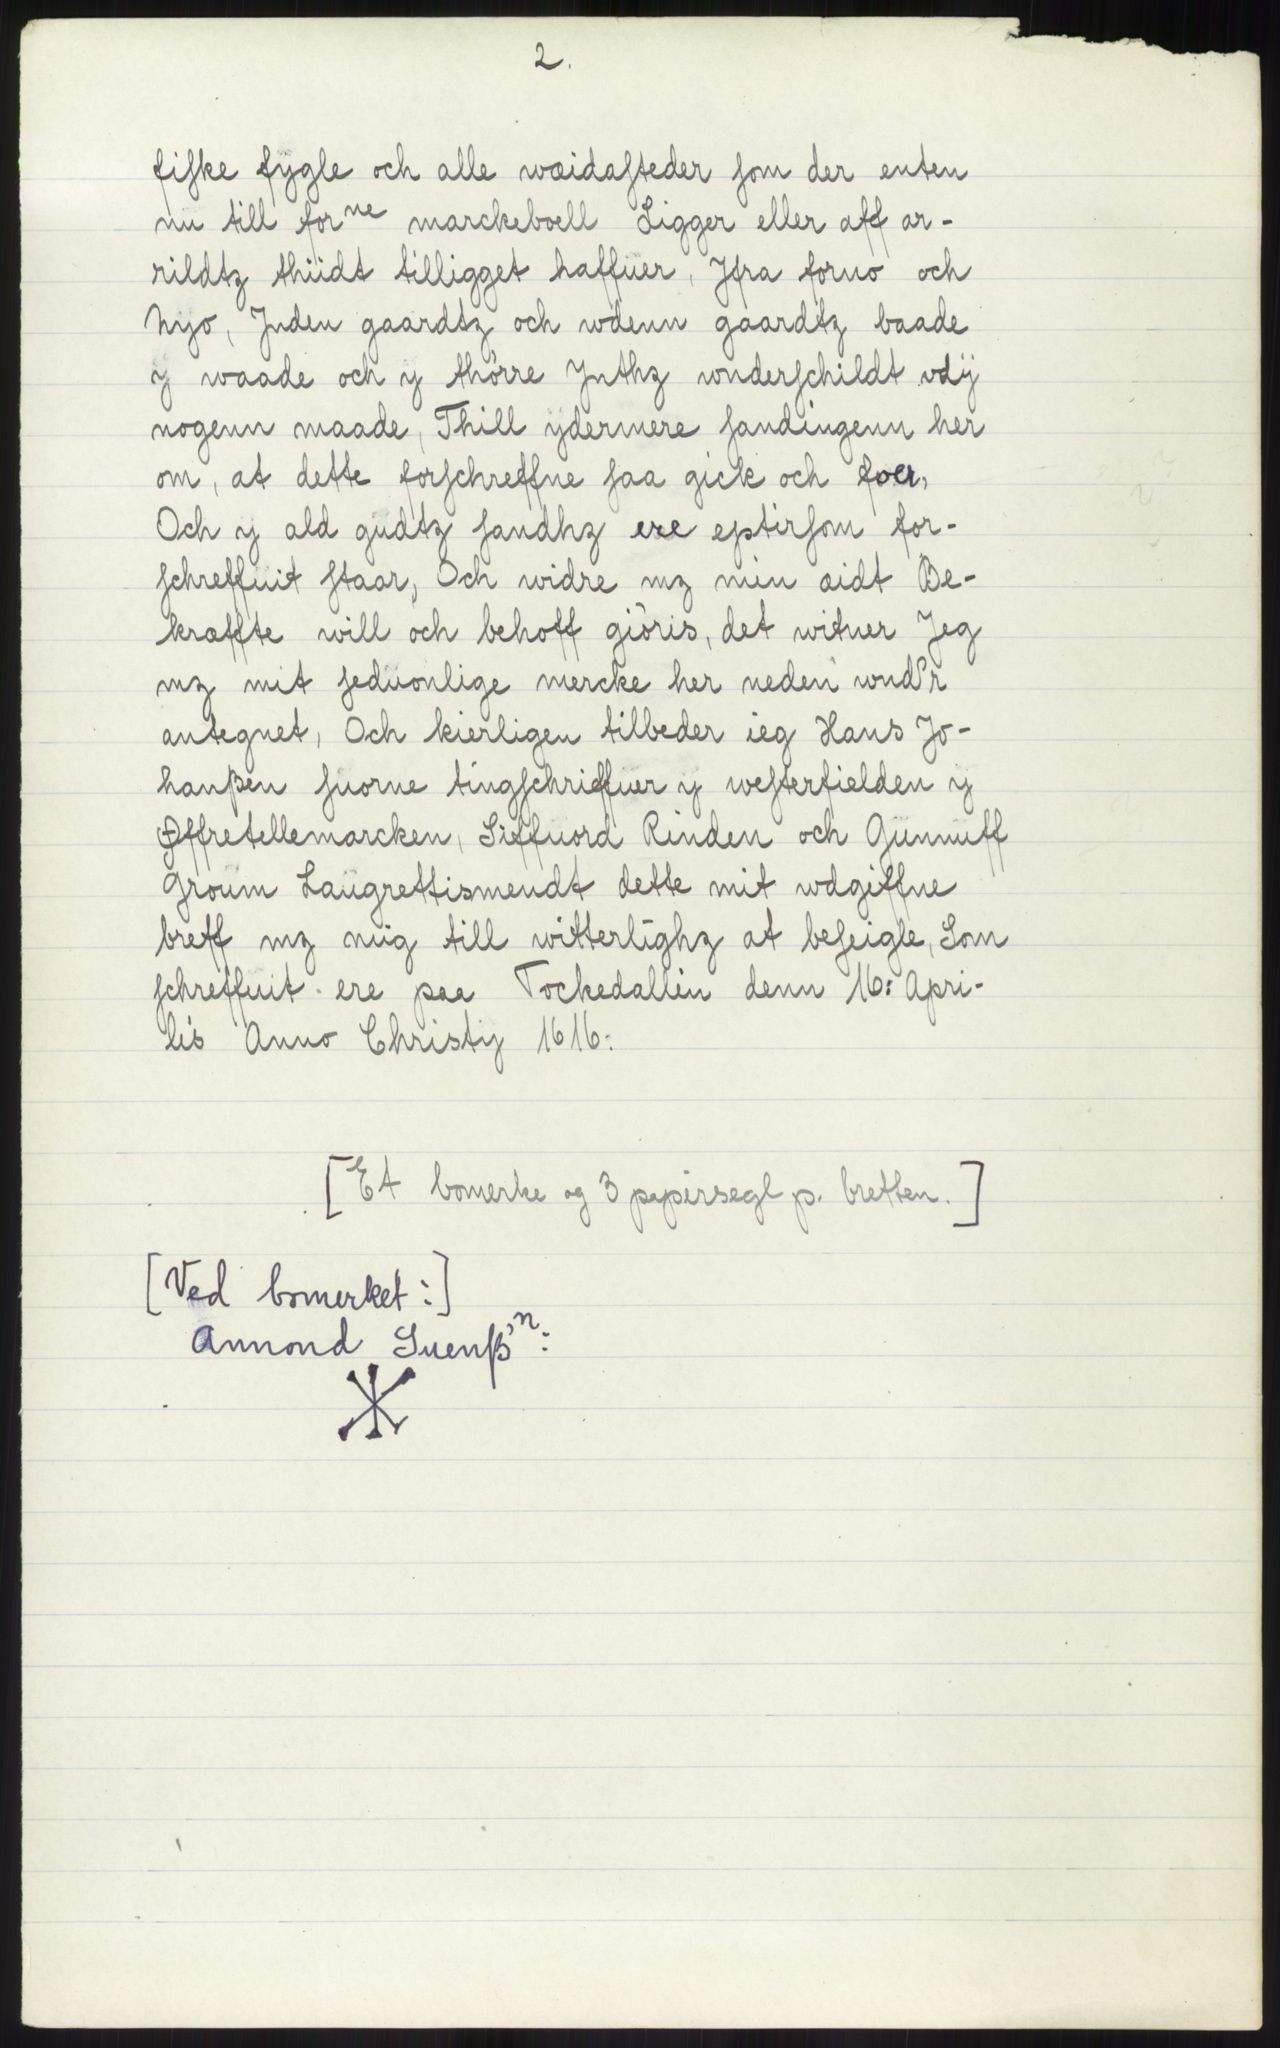 2.
fiske fÿgle och alle wæidasteder som der enten
nu till for<sup>ne</sup> marckeboell Ligger eller aff ar-
rildtz thiidt tilligget haffuer, Jfra forno och
Nyo, Jnden gaardtz och wdenn gaardtz baade
y waade och y thörre Jnthz wnderschildt vdÿ
nogenn maade, Thill ÿdermere sandingenn her
om, at dette forschreffne saa gick och foer,
Och y ald gudtz sandhz ere eptirsom for-
schreffuit staar, Och widre mz min æidt Be-
kræffte will och behoff giöris, det witner Jeg
mz mit seduonlige mercke her neden wnd'r
antegnet, Och kierligen tilbeder ieg Hans Jo-
hanßen suorne tingschriffuer y westerfielden y
Øffretellemarcken, Siffuord Rinden och Gunnuff
Groum Laugrettismendt dette mit wdgiffne
breff mz mig till witterlighz at beseigle, Som
schreffuit ere paa Tockedallin denn 16: Apri-
lis Anno Christy 1616:
[Et bomerke og 3 papirsegl p. bretten.]
[Ved bomerket:]
Annond Suenß'<sup>n</sup>: